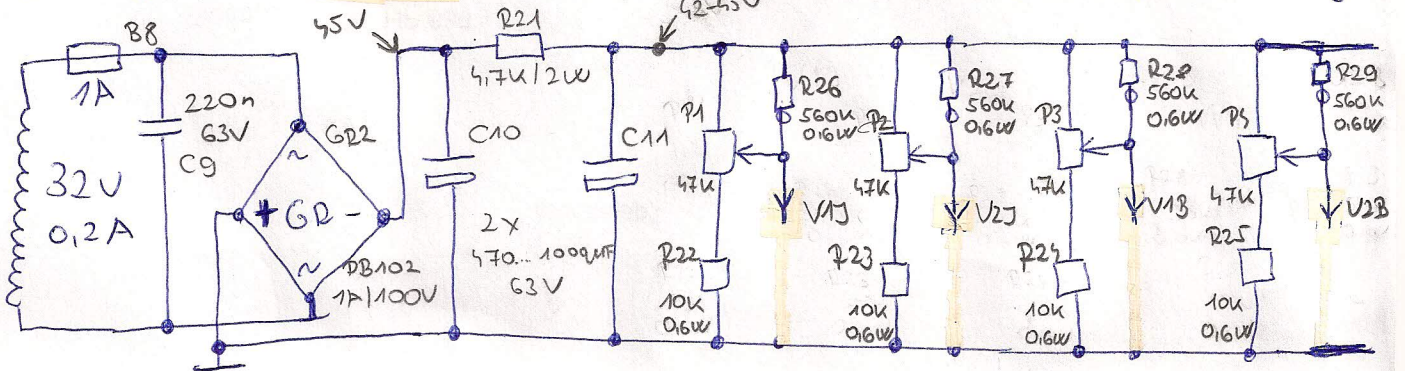 B8
1A
32V
0,2A
220n
63V
C9
GR2
~
+ GR -
~
DB102
1A/100V
45V
R21
4,7K/2W
42-45V
C10
2x
470...1000µF
63V
C11
P1
47K
R22
10K
0,6W
R26
560K
0,6W
V1J
P2
47K
R23
10K
0,6W
R27
560K
0,6W
V2J
P3
47K
R24
10K
0,6W
R28
560K
0,6W
V1B
P4
47K
R25
10K
0,6W
R29
560K
0,6W
V2B